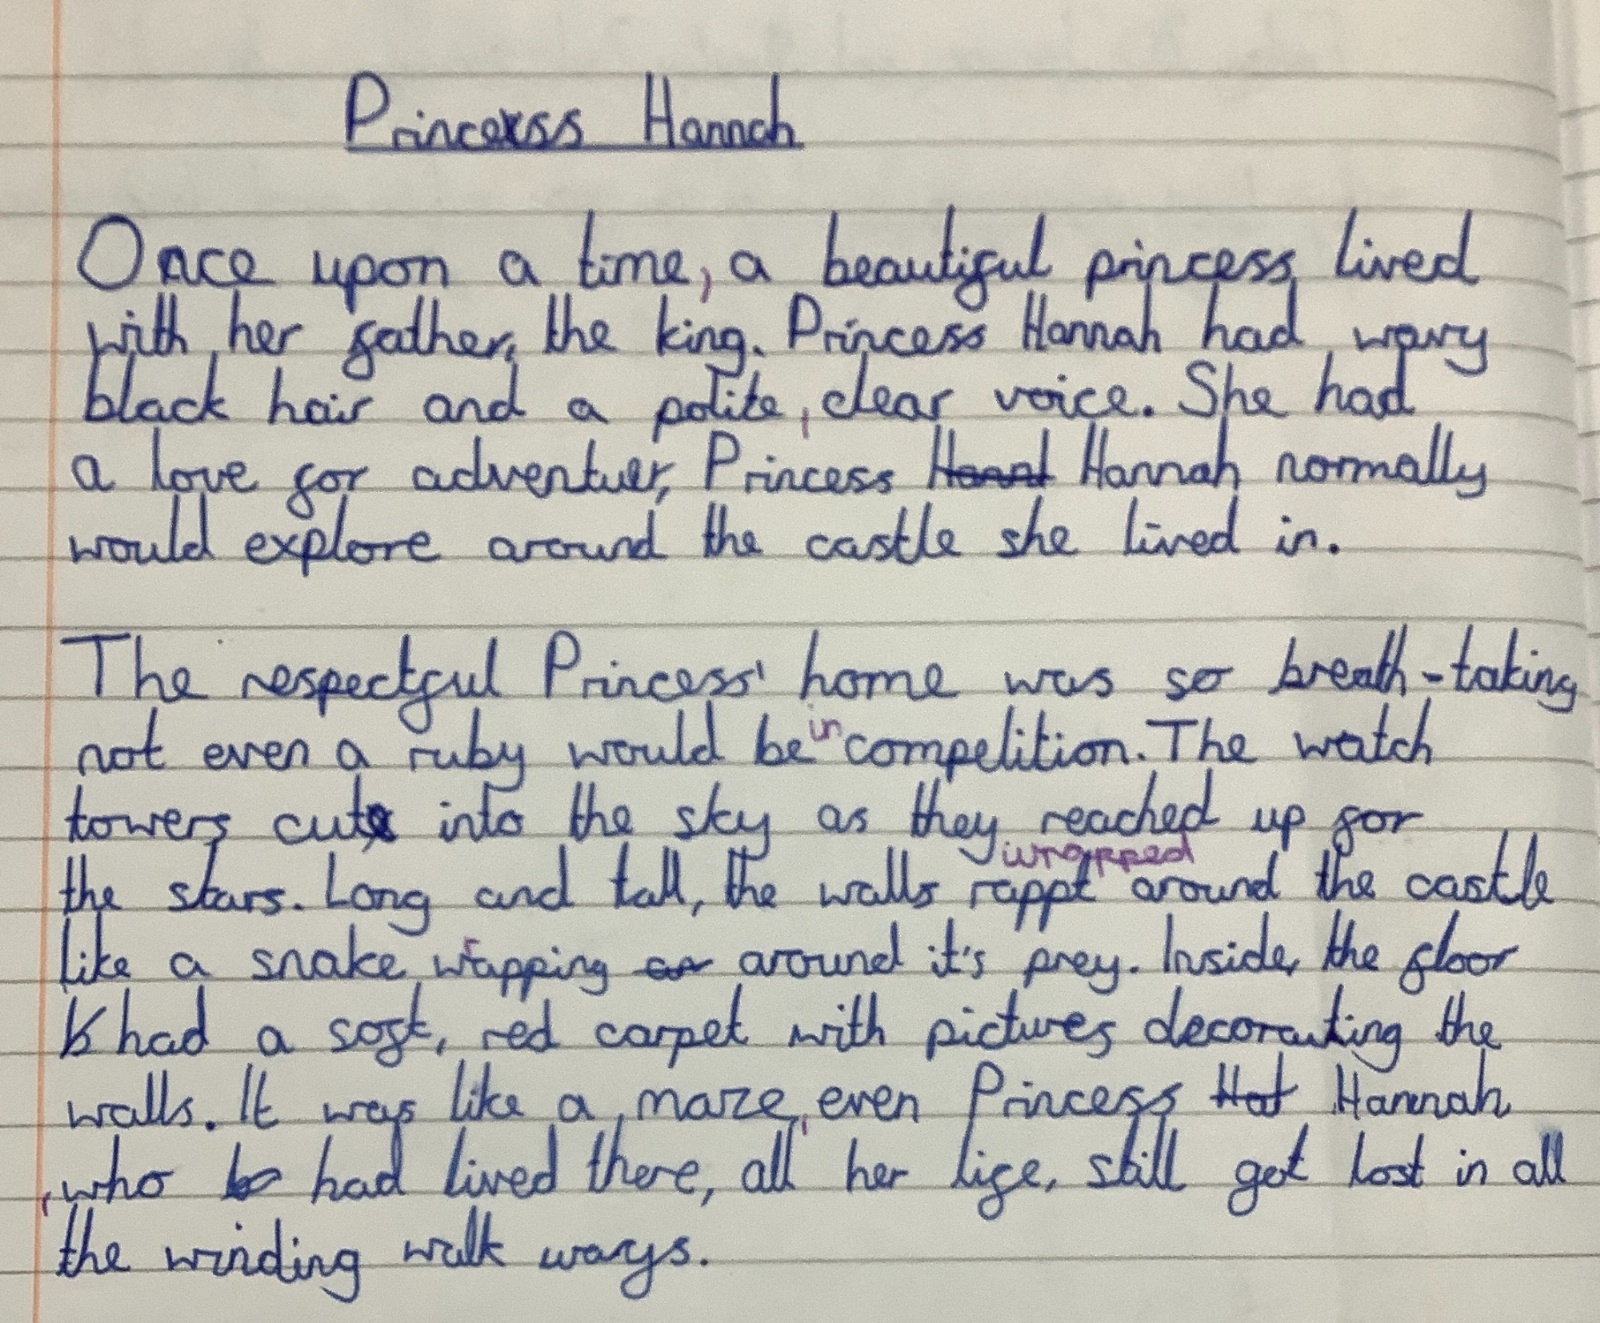 Princess Hannah
Once upon a time, a beautiful princess lived
with her father, the king. Princess Hannah had wavy
black hair and a polite, clear voice. She had
a love for adventuer, Princess Hannah normally
would explore around the castle she lived in.
The respectful Princess' home was so breath-taking
not even a ruby would be in competition. The watch
towers cut into the sky as they reached up for
the stars. Long and tall, the walls rappt wrapped around the castle
like a snake wrapping around it's prey. Inside, the floor
had a soft, red carpet with pictures decorating the
walls. It was like a maze, even Princess Hannah
, who had lived there, all her life, still get lost in all
the winding walk ways.